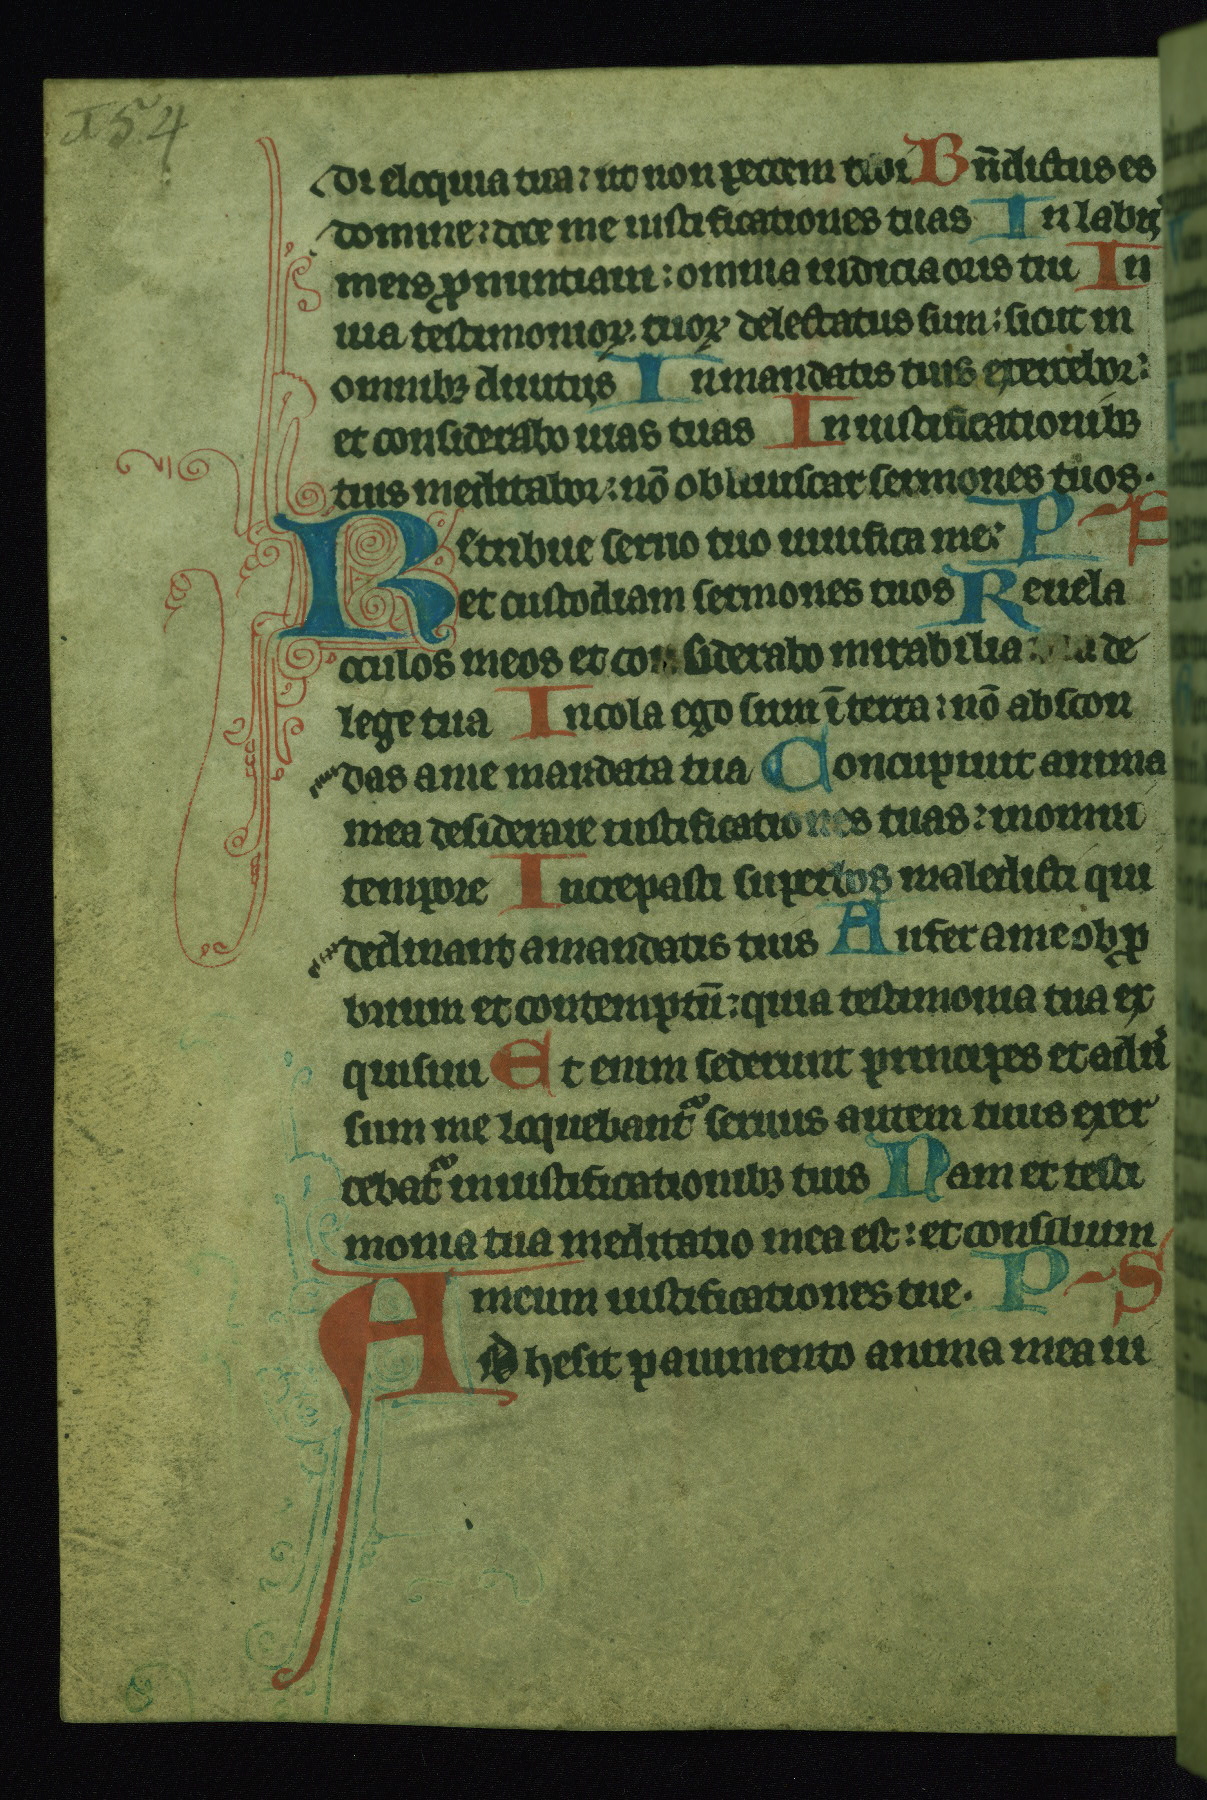 154
di eloquia tua: ut non peccem tibi Bn̄dictus es
domine: doce me iustificationes tuas In labijs
meis ꝓnuntiaui: omnia iudicia oris tui In
uia testimonioꝝ tuoꝝ delectatus sum: sicut in
omnibꝫ diuitijs In mandatis tuis exercebor:
et considerabo uias tuas In iustificationibꝫ
tuis meditabor: nō obliuiscar sermones tuos.
Retribue seruo tuo uiuifica me: P
et custodiam sermones tuos Reuela
oculos meos et considerabo mirabilia: de
lege tua Incola ego sum ī terra: nō abscon
das a me mandata tua Concupiuit anima
mea desiderare iustificationes tuas: in omni
tempore Increpasti superbos maledicti qui
declinant a mandatis tuis Aufer a me obꝓ
brium et contemptū: quia testimonia tua ex
quisiui Et enim sederunt principes et aduͥ
sum me loquebantᷓ seruus autem tuus exer
cebatᷓ in iustificationibꝫ tuis Nam et testi
monia tua meditatio mea est: et consilium
meum iustificationes tue. P S
Adhesit pauimento anima mea ui